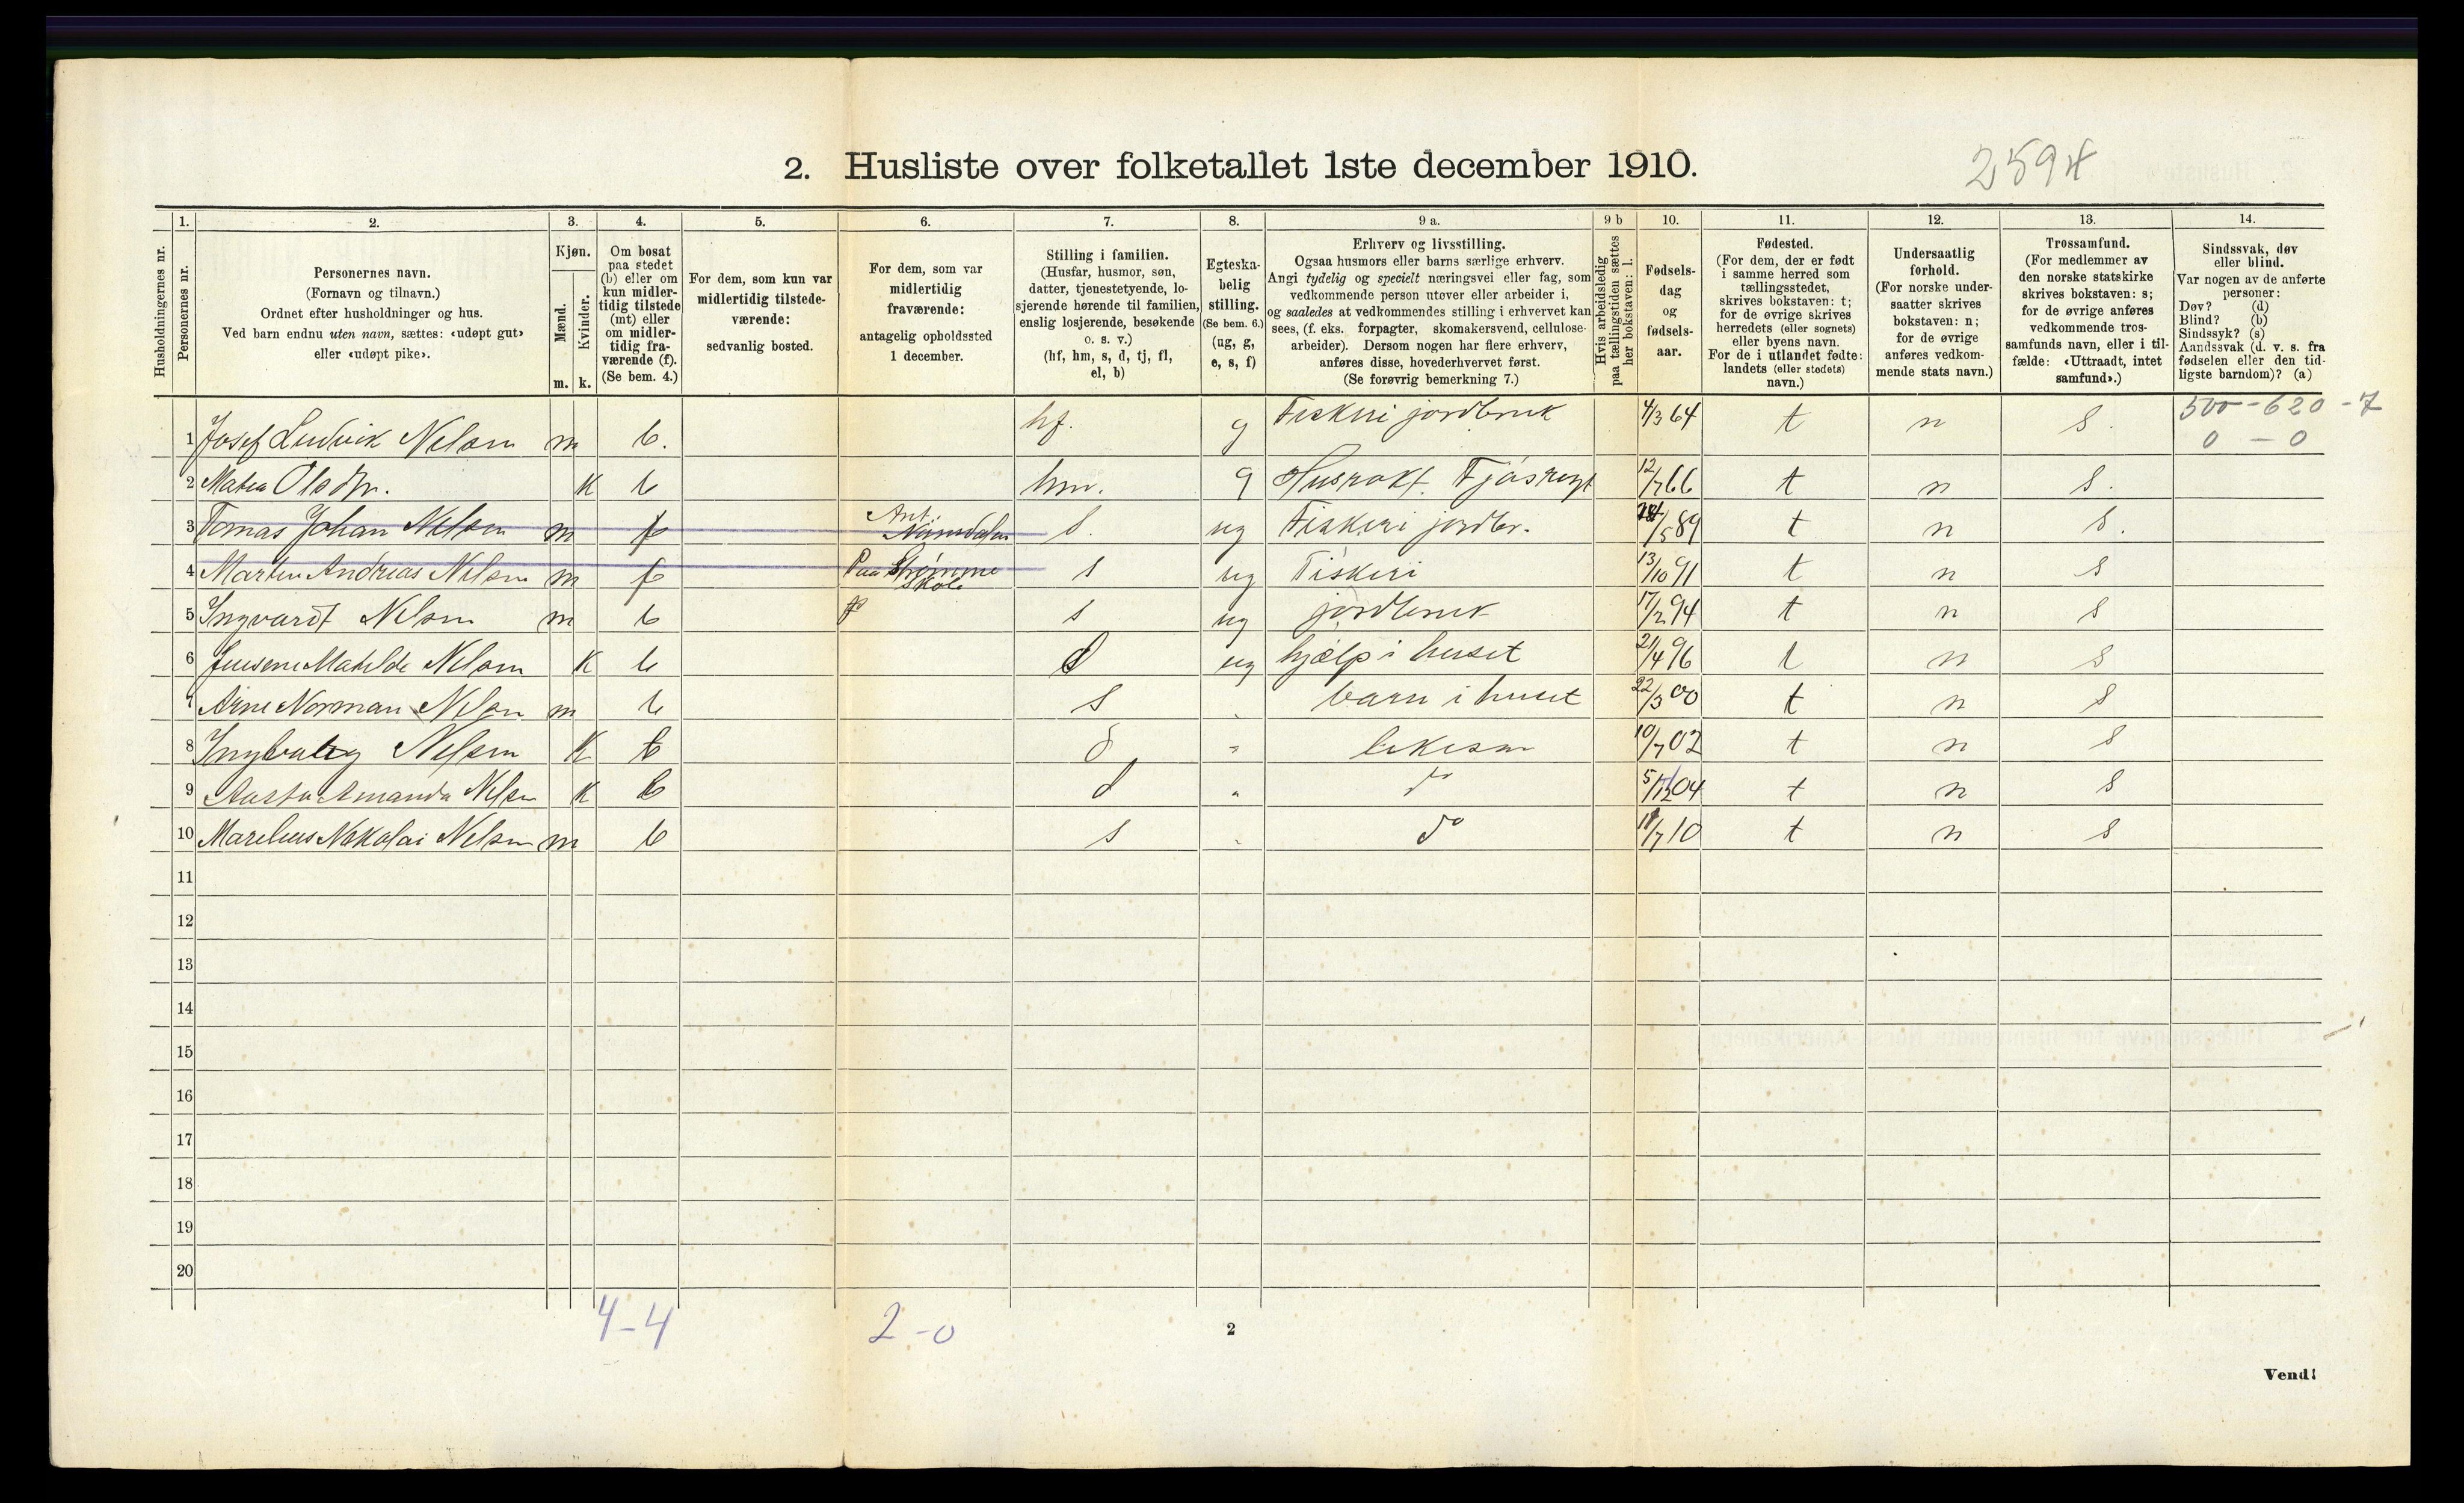 2. Husliste over folketallet 1ste december 1910.
2594
1. 2. 3. 4. 5. 6. 7. 8. 9 a. 9 b 10. 11. 12. 13. 14.
Husholdningernes nr.
Personernes nr.
Personernes navn.
(Fornavn og tilnavn.)
Ordnet efter husholdninger og hus.
Ved barn endnu uten navn, sættes: «udøpt gut»
eller «udøpt pike».
Kjøn.
Mænd.
Kvinder.
m. k.
Om bosat
paa stedet
(b) eller om
kun midler-
tidig tilstede
(mt) eller
om midler-
tidig fra-
værende (f).
(Se bem. 4.)
For dem, som kun var
midlertidig tilstede-
værende:
sedvanlig bosted.
For dem, som var
midlertidig
fraværende:
antagelig opholdssted
1 december.
Stilling i familien.
(Husfar, husmor, søn,
datter, tjenestetyende, lo-
sjerende hørende til familien,
enslig losjerende, besøkende
o. s. v.)
(hf, hm, s, d, tj, fl,
el, b)
Egteska-
belig
stilling.
(Se bem. 6.)
(ug, g,
e, s, f)
Erhverv og livsstilling.
Ogsaa husmors eller barns særlige erhverv.
Angi tydelig og specielt næringsvei eller fag, som
vedkommende person utøver eller arbeider i,
og saaledes at vedkommendes stilling i erhvervet kan
sees, (f. eks. forpagter, skomakersvend, cellulose-
arbeider). Dersom nogen har flere erhverv,
anføres disse, hovederhvervet først.
(Se forøvrig bemerkning 7.)
Hvis arbeidsledig
paa tællingstiden sættes
her bokstaven: l.
Fødsels-
dag
og
fødsels-
aar.
Fødested.
(For dem, der er født
i samme herred som
tællingsstedet,
skrives bokstaven: t;
for de øvrige skrives
herredets (eller sognets)
eller byens navn.
For de i utlandet fødte:
landets (eller stedets)
navn.)
Undersaatlig
forhold.
(For norske under-
saatter skrives
bokstaven: n;
for de øvrige
anføres vedkom-
mende stats navn.)
Trossamfund.
(For medlemmer av
den norske statskirke
skrives bokstaven: s;
for de øvrige anføres
vedkommende tros-
samfunds navn, eller i til-
fælde: «Uttraadt, intet
samfund».)
Sindssvak, døv
eller blind.
Var nogen av de anførte
personer:
Døv? (d)
Blind? (b)
Sindssyk? (s)
Aandssvak (d. v. s. fra
fødselen eller den tid-
ligste barndom)? (a)
500-620-7
0 - 0
1 Josef Ludvik Nelsen m b. hf. g Fiskeri jordbruk 4/3 64 t n s.
2 Matea Olsdtr. K b hm. g Husrøkt. Fjøsrøgt 12/7 66 t n s.
3 Tomas Johan Nelsen m f Ant. Namdalen s. ug Fiskeri jordbr. 5 89 t n s.
4 Martin Andreas Nelsen m f Paa Skole s ug Fiskeri 13/10 91 t n s
5 Ingvardt Nelsen m b s ug jordbruk 17/2 94 t n s
6 Jensene Matilde Nelsen K b d ug hjælp i huset 21/4 96 t n s
7 Arne Norman Nelsen m b s barn i huset 22/3 00 t n s
8 Nelsen K b d " 10/7 02 t n s
9 Aasta Amanda Nelsen K b d " do 5/12 04 t n s
10 Marelius Nikolai Nelsen m b s " do 7 10 t n s
11
12
13
14
15
16
17
18
19
20
4-4
2-0
2
Vend!